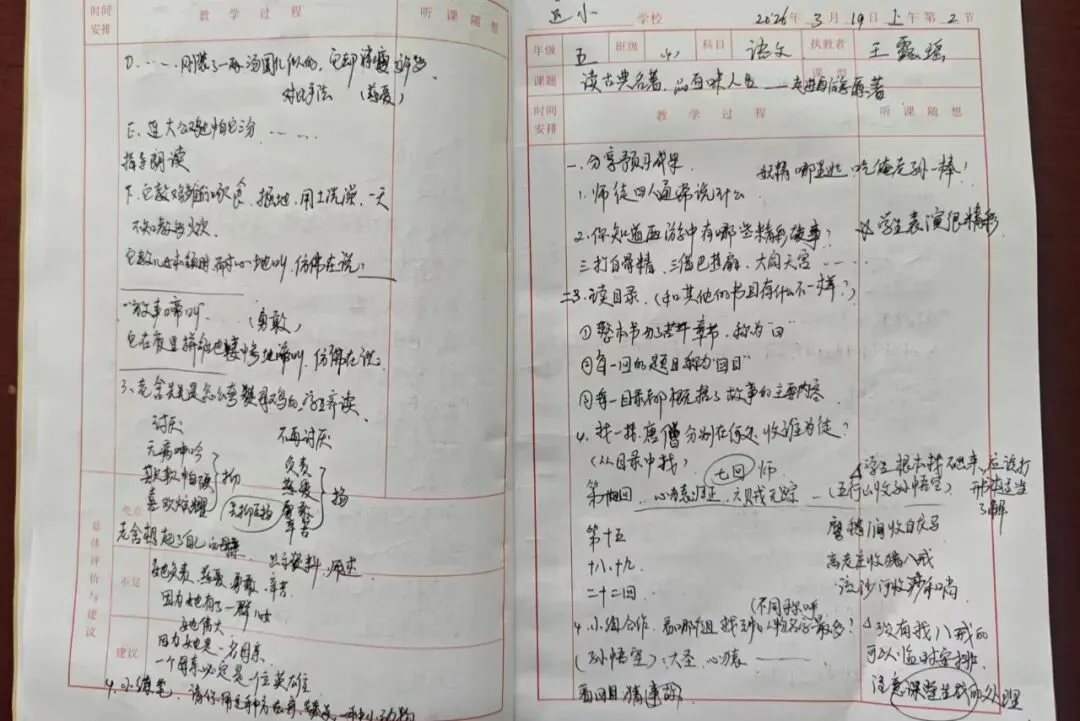 时间安排 教学过程 听课随想
D. …… 刚装了一两汤圆儿似的，它却消瘦许多
对比手法 （慈爱）
E. 连大公鸡也怕它三分 ……
指导朗读
下. 它教鸡雏们啄食，掘地，用土洗澡，一天
不知教多少次.
仿佛在说：
（勇敢）
仿佛在说：
3、老舍先生是怎么
齐读
讨厌 不再讨厌
无病呻吟 负责
欺软怕硬 慈爱
喜欢炫耀 勇敢
辛苦
抑 扬
先抑后扬
总体评价与建议
优点
不足
建议
老舍想起了自己的母亲.
她负责、慈爱、勇敢、辛苦
因为她有了一群儿女
她伟大
因为她是一名母亲
一个母亲必定是一位英雄
4. 小练笔
学校 2026年3月19日上午第2节
年级 五 班级 科目 语文 执教者 王露瑶
课题 读古典名著，品百味人生 课型
时间安排 教学过程 听课随想
一. 分享预习成果 妖精哪里逃，吃俺老孙一棒！
1. 师徒四人通常说什么
2. 你知道西游记中有哪些精彩故事？ 学生表演很精彩
三打白骨精，三借芭蕉扇，大闹天宫 ……
读目录.（和其他的书目有什么不一样？）
① 整本书分了若干章节，称为“回”
② 每一回的题目称为“回目”
③ 每一目录都概括了故事的主要内容
4. 找一找，唐僧分别在何处收谁为徒？
（从目录中找） 七回 师
心猿归正，六贼无踪 （五行山收孙悟空）
学生根本找不出来，应该打
了解
第十五 鹰愁涧收白龙马
十八、十九 高老庄收猪八戒
二十二回 流沙河收沙和尚
（不同称呼
4. 小组合作，看哪组找到的人物名字最多？
（孙悟空）：大圣、心猿
没有找八戒的
可以临时安排.
看回目猜故事
注意课堂生成的处理